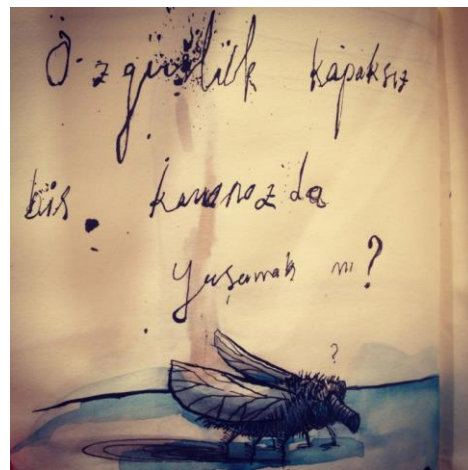 Özgürlük kapaksız
bir kavanozda
yaşamak mı?
?